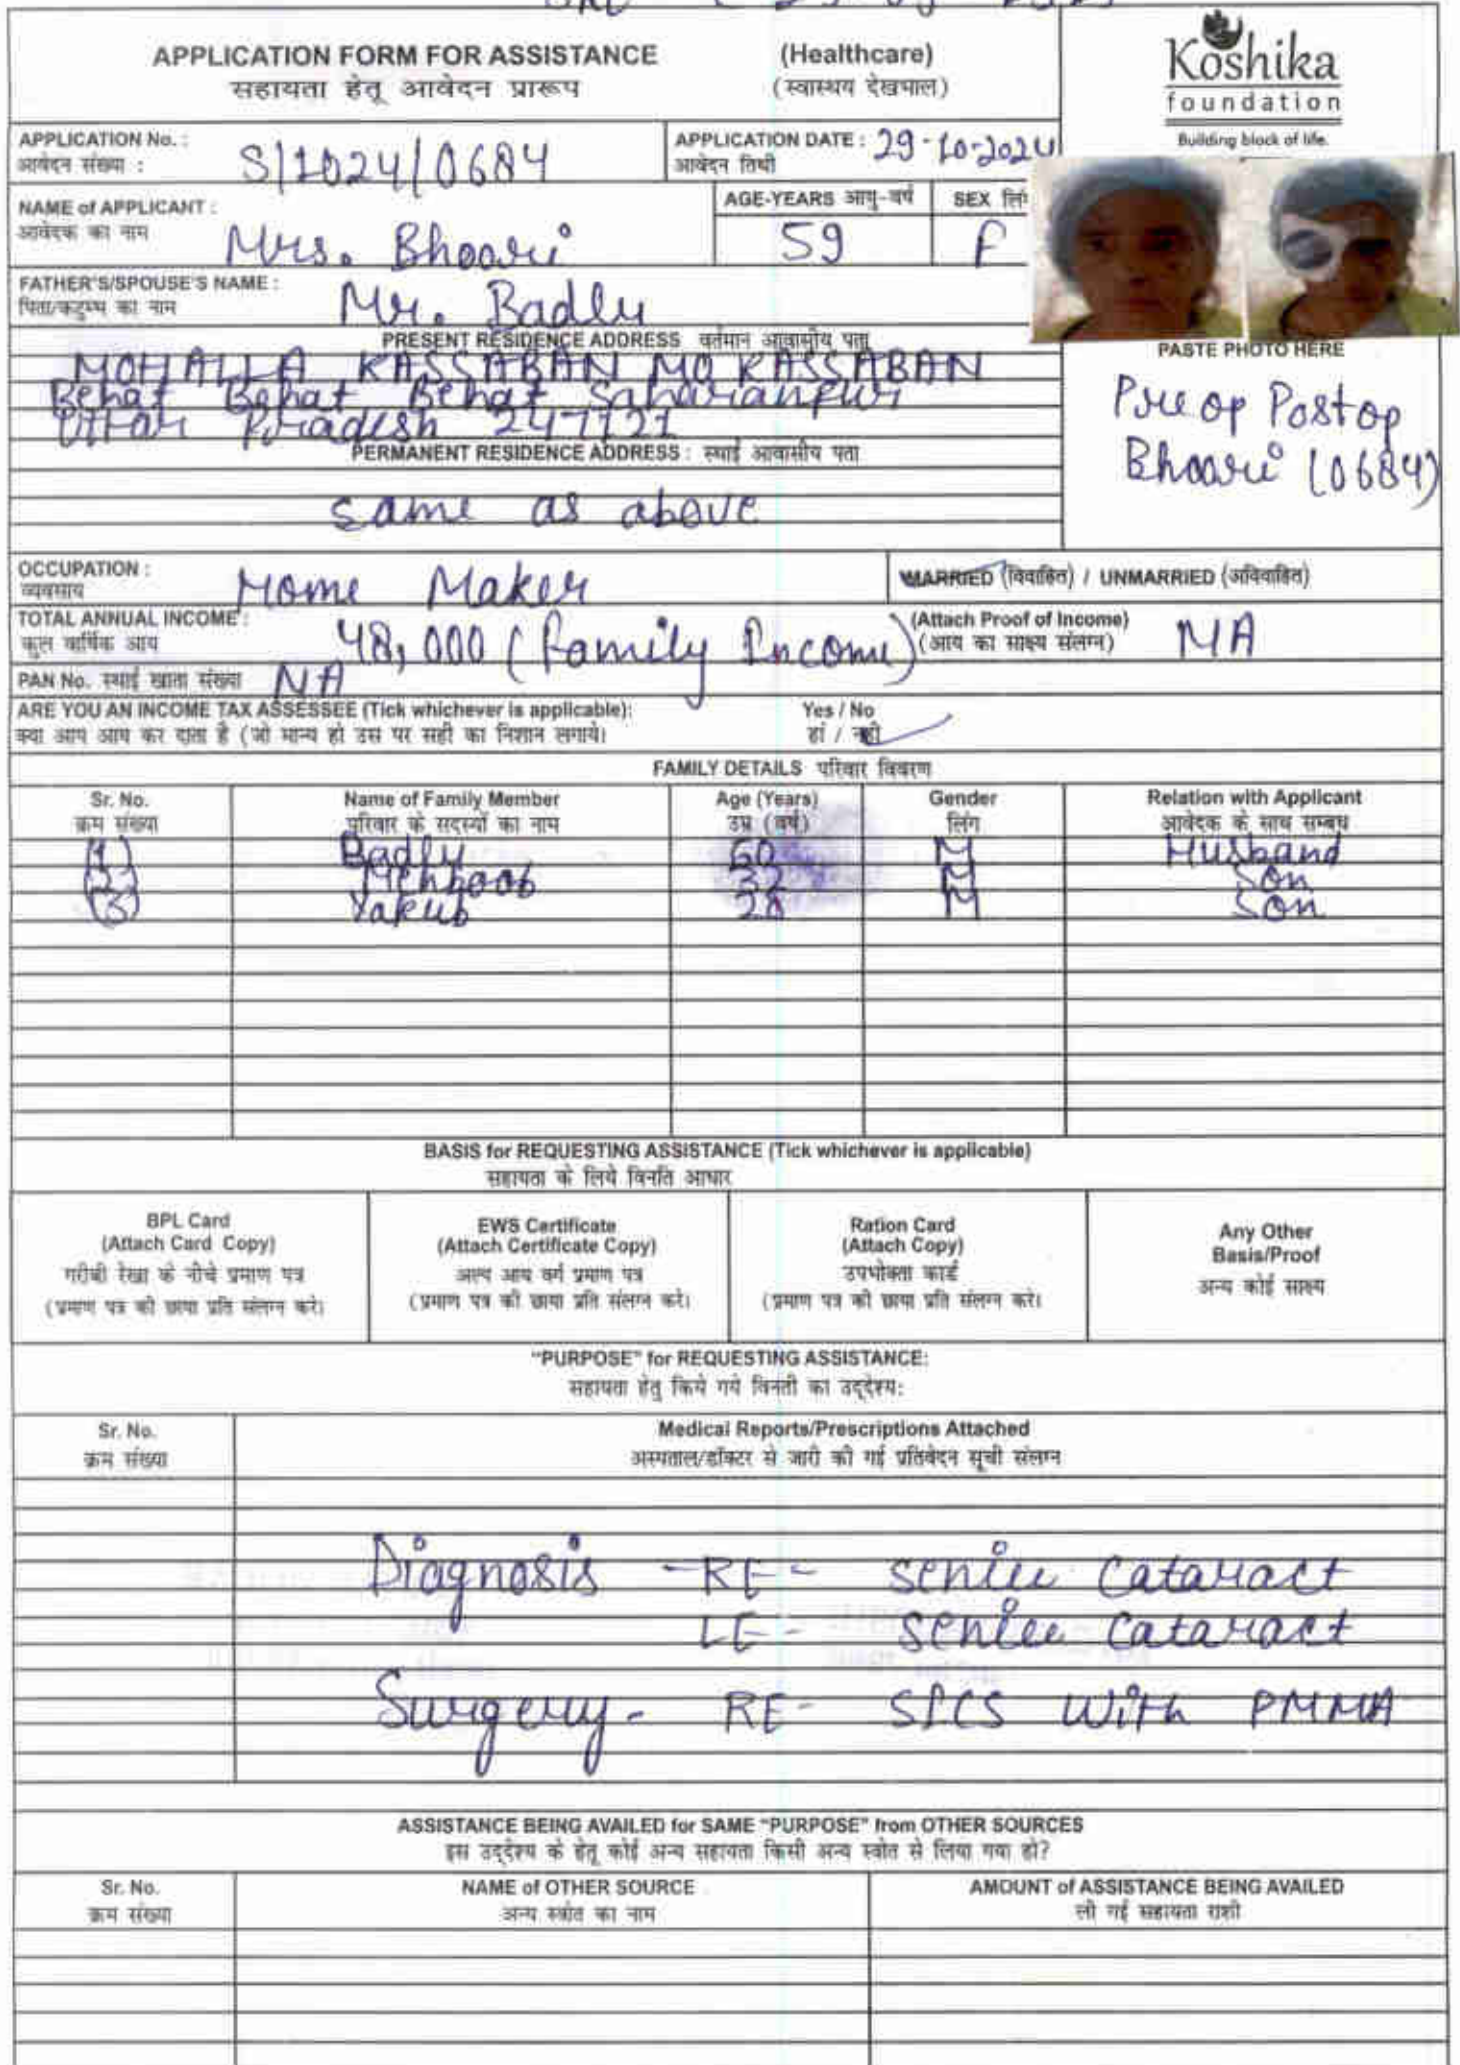 APPLICATION FORM FOR ASSISTANCE (Healthcare)
सहायता हेतू आवेदन प्रारूप (स्वास्थय देखभाल)
Koshika
foundation
Building block of life.
APPLICATION No. : S/1024/0684
आवेदन संख्या :
APPLICATION DATE : 29-10-2024
आवेदन तिथी
NAME of APPLICANT : Mrs. Bhoori
आवेदक का नाम
AGE-YEARS आयु-वर्ष 59
SEX F
FATHER'S/SPOUSE'S NAME : Mr. Badlu
पिता/कटुम्ब का नाम
PRESENT RESIDENCE ADDRESS वर्तमान आवासीय पता
MOHALLA KASSABAN MO KASSABAN
Behat Behat Behat Saharanpur
Uttar Pradesh 247121
PERMANENT RESIDENCE ADDRESS : स्थाई आवासीय पता
same as above
PASTE PHOTO HERE
Pre op Postop
Bhoori (0684)
OCCUPATION : Home Maker
व्यवसाय
MARRIED (विवाहित) / UNMARRIED (अविवाहित)
TOTAL ANNUAL INCOME : 48,000 (Family Income)
कुल वार्षिक आय
(Attach Proof of Income) NA
(आय का साक्ष्य संलग्न)
PAN No. स्थाई खाता संख्या NA
ARE YOU AN INCOME TAX ASSESSEE (Tick whichever is applicable): Yes / No
क्या आप आय कर दाता है (जो मान्य हो उस पर सही का निशान लगाये। हां / नही
FAMILY DETAILS परिवार विवरण
Sr. No. Name of Family Member Age (Years) Gender Relation with Applicant
क्रम संख्या परिवार के सदस्यों का नाम उम्र (वर्ष) लिंग आवेदक के साथ सम्बध
(1) Badlu 60 M Husband
(2) Mehboob 32 M Son
(3) Yakub 28 M Son
BASIS for REQUESTING ASSISTANCE (Tick whichever is applicable)
सहायता के लिये विनति आधार
BPL Card
(Attach Card Copy)
गरीबी रेखा के नीचे प्रमाण पत्र
(प्रमाण पत्र की छाया प्रति संलग्न करे।
EWS Certificate
(Attach Certificate Copy)
अल्प आय वर्ग प्रमाण पत्र
(प्रमाण पत्र की छाया प्रति संलग्न करे।
Ration Card
(Attach Copy)
उपभोक्ता कार्ड
(प्रमाण पत्र की छाया प्रति संलग्न करे।
Any Other
Basis/Proof
अन्य कोई साक्ष्य
"PURPOSE" for REQUESTING ASSISTANCE:
सहायता हेतु किये गये विनती का उद्देश्य:
Sr. No. Medical Reports/Prescriptions Attached
क्रम संख्या अस्पताल/डॉक्टर से जारी की गई प्रतिवेदन सूची संलग्न
Diagnosis - RE - senile cataract
LE - senile cataract
Surgery - RE - SICS with PMMA
ASSISTANCE BEING AVAILED for SAME "PURPOSE" from OTHER SOURCES
इस उद्देश्य के हेतू कोई अन्य सहायता किसी अन्य स्त्रोत से लिया गया हो?
Sr. No. NAME of OTHER SOURCE AMOUNT of ASSISTANCE BEING AVAILED
क्रम संख्या अन्य स्त्रोत का नाम ली गई सहायता राशी